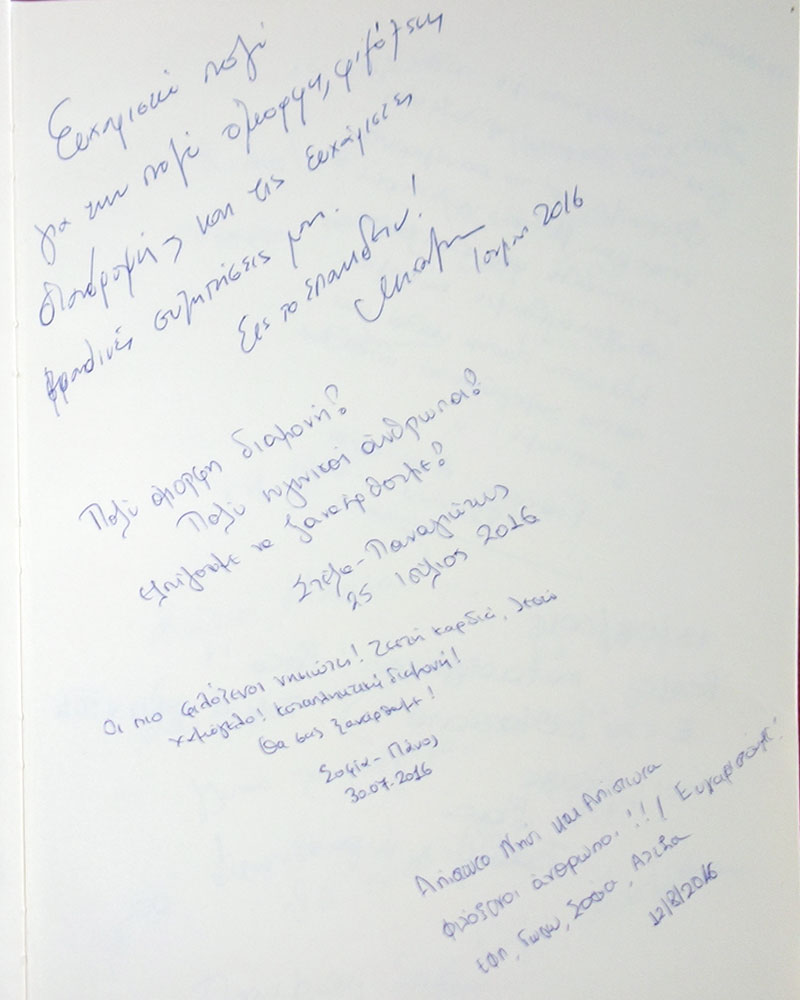 Ευχαριστώ πολύ
για την πολύ όμορφη, φιλόξενη
διαδρομής και τις ευχάριστες
βραδινές συζητήσεις μας.
Εις το επανιδείν!
Ιούλιος 2016
Πολύ όμορφη διαμονή!
Πολύ ευγενικοί άνθρωποι!
ελπίζουμε να ξαναέρθουμε!
Στέλα-Παναγιώτης
25 Ιούλιος 2016
Οι πιο φιλόξενοι νησιώτες! Ζεστή καρδιά, ζεστό
χαμόγελο! Καταπληκτική διαμονή!
Θα σας ξανάρθουμε!
Σοφία-Πάνος
30.07.2016
Απίστευτο Νησί και Απίστευτα
φιλόξενοι άνθρωποι!!! Ευχαριστούμε!
Έφη, Σοφία,
12/8/2016